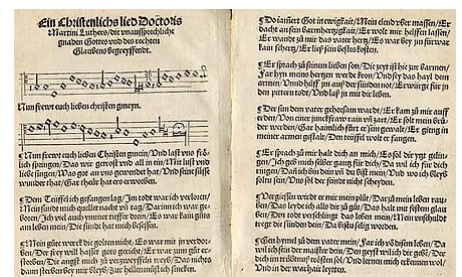 Ein Christenlichs lied Doctoris
Martin Luthers/die vnaussprechliche
gnaden Gottes vnd des rechten
Glaubens begreyffendt.
Nun frewt euch lieben christen gmeyn.
Nun frewt euch lieben Christen gmein/Vnd last vns frö-
lich springen/Das wir getrost vnd all in ein/Mit lust vnd
liebe singen/Was got an vns gewendet hat/Vnd seine süsse
wunder that/Gar theür hat ers erworben.
Dem Teüffel ich gefangen lag/Im todt war ich verloren/
Mein sünde mich quellet nacht vñ tag/Darinn ich war ge-
boren/Ich viel auch ymmer tieffer drein/Es war kain güts
am leben mein/Die sünde hat mich besessen.
Mein güte werck die golten nicht/Es war mit jn verdor-
ben/Der frey will hasset gots gericht/Er war zum güt er-
storben/Die angst mich zů verzweyfeln treyb/Das nichts
dann sterben bey mir bleyb/Zur hellen můst ich sincken.
Do jamert Got in ewigkait/Mein elend vber massen/Er
dacht an sein barmhertzigkait/Er wolt mir helffen lassen/
Er wandt zů mir das vater hertz/Es war bey jm fürwar
kain schertz/Er ließ sein bestes kosten.
Er sprach zů seinem lieben son/Die zeyt ist hie zur barmen/
Far hyn meins hertzen werde kron/Vnd sey das hayl dem
armen/Vnd hilff jm auß der sünden not/Erwürge für jn
den pittern tod/Vnd laß jn mit dir leben.
Der sun dem vater gehorsam wardt/Er kam zů mir auff
erden/Von einer junckfraw rain vñ zart/Er solt mein brů-
der werden/Gar haimlich fürt er sein gewalt/Er gieng in
meiner armen gstalt/Den teüffel wolt er fangen.
Er sprach zů mir halt dich an mich/Es sol dir yetz gelin-
gen/Ich geb mich selber gantz für dich/Da wil ich für dich
ringen/Dañ ich bin dein vñ du bist mein/Vnd wo ich bleyb
soltu sein/Vns sol der feindt nicht scheyden.
Vergiessen wirdt er mir mein plůt/Darzů mein leben rau-
ben/Das leyd ich alles dir zů gůt/Das halt mit festem glau-
ben/Den tod verschlingt das leben mein/Mein vnschuld
tregt die sünden dein/Da bistu selig worden.
Gen hymel zů dem vater mein/Far ich von disem leben/Da
wil ich sein der maister dein/Den geyst wil ich dir geben/Der
dich im trübtnuß trösten sol/Vnd lernen mich erkennen wol/
Vnd in der warhayt leyten.